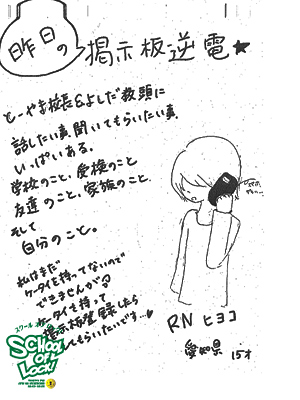 昨日の
掲示板逆電★
とーやま校長&よしだ教頭に
話したい事、聞いてもらいたい事
いっぱいある。
学校のこと、受検のこと
友達のこと、家族のこと
そして
自分のこと。
私はまだ
ケータイを持ってないので
できませんが
ケータイ持って
掲示板登録したら
してもらいたいです…
RN ヒヨコ
愛知県 15才
スクール
SCHOOL
OF
LOCK!